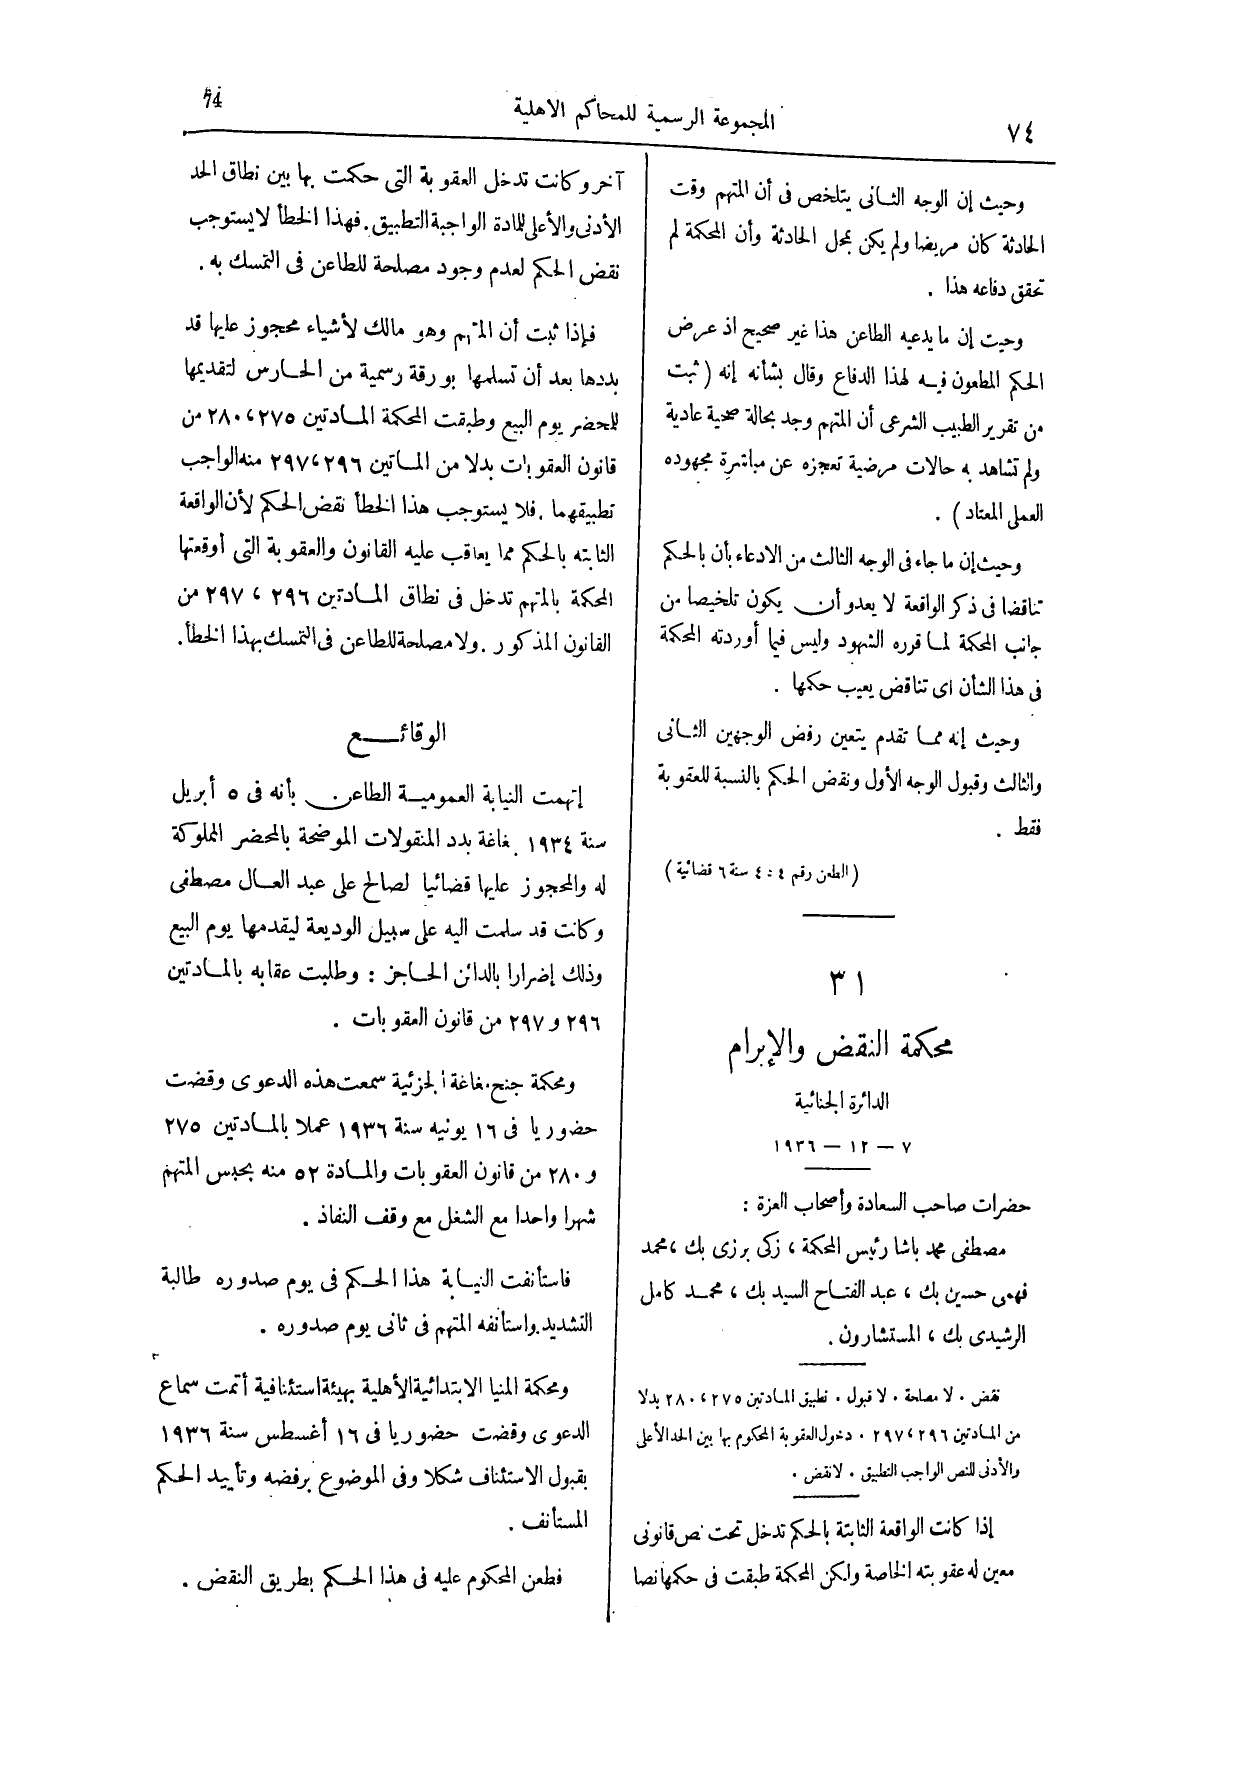 74
المجموعة الرسمية للمحاكم الاهلية
٧٤
وحيث إن الوجه الثانى يتلخص فى أن المتهم وقت
الحادثة كان مريضا ولم يكن بمحل الحادثة وأن المحكمة لم
تحقق دفاعه هذا .
وحيت إن ما يدعيه الطاعن هذا غير صحيح اذ عرض
الحكم المطعون فيه لهذا الدفاع وقال بشأنه إنه ( ثبت
من تقرير الطبيب الشرعى أن المتهم وجد بحالة صحية عادية
ولم تشاهد به حالات مرضية تعجزه عن مباشرة مجهوده
العملى المعتاد ) .
وحيث إن ما جاء فى الوجه الثالث من الادعاء بأن بالحكم
تناقضا فى ذكر الواقعة لا يعدو أن يكون تلخيصا من
جانب المحكمة لما قرره الشهود وليس فيما أوردته المحكمة
فى هذا الشأن اى تناقض يعيب حكمها .
وحيث إنه مما تقدم يتعين رفض الوجهين الثانى
والثالث وقبول الوجه الأول ونقض الحكم بالنسبة للعقوبة
فقط .
( الطعن رقم ٤ سنة ٦ قضائية )
٣١
محكمة النقض والإبرام
الدائرة الجنائية
٧ — ١٢ — ١٩٣٦
حضرات صاحب السعادة وأصحاب العزة :
مصطفى محمد باشا رئيس المحكمة ، زكى برزى بك ، محمد
فهمى حسين بك ، عبد الفتاح السيد بك ، محمد كامل
الرشيدى بك ، المستشارون .
نقض . لا مصلحة . لا قبول . تطبيق المادتين ٢٧٥ ، ٢٨٠ بدلا
من المادتين ٢٩٦ ، ٢٩٧ . دخول العقوبة المحكوم بها بين الحد الأعلى
والأدنى للنص الواجب التطبيق . لا نقض .
إذا كانت الواقعة الثابتة بالحكم تدخل تحت نص قانونى
معين له عقوبته الخاصة ولكن المحكمة طبقت فى حكمها نصا
آخر وكانت تدخل العقوبة التى حكمت بها بين نطاق الحد
الأدنى والأعلى للمادة الواجبة التطبيق . فهذا الخطأ لا يستوجب
نقض الحكم لعدم وجود مصلحة للطاعن فى التمسك به .
فإذا ثبت أن المتهم وهو مالك لأشياء محجوز عليها قد
بددها بعد أن تسلمها بورقة رسمية من الحارس لتقديمها
للمحضر يوم البيع وطبقت المحكمة المادتين ٢٧٥ ، ٢٨٠ من
قانون العقوبات بدلا من الماتين ٢٩٦ ، ٢٩٧ منه الواجب
تطبيقهما . فلا يستوجب هذا الخطأ نقض الحكم لأن الواقعة
الثابته بالحكم مما يعاقب عليه القانون والعقوبة التى أوقعتها
المحكمة بالمتهم تدخل فى نطاق المادتين ٢٩٦ ، ٢٩٧ من
القانون المذكور . ولا مصلحة للطاعن فى التمسك بهذا الخطأ .
الوقائع
إتهمت النيابة العمومية الطاعن بأنه فى ٥ أبريل
سنة ١٩٣٤ بمغاغة بدد المنقولات الموضحة بالمحضر المملوكة
له والمحجوز عليها قضائيا لصالح على عبد العال مصطفى
وكانت قد سلمت اليه على سبيل الوديعة ليقدمها يوم البيع
وذلك إضرارا بالدائن الحاجز : وطلبت عقابه بالمادتين
٢٩٦ و ٢٩٧ من قانون العقوبات .
ومحكمة جنح مغاغة الجزئية سمعت هذه الدعوى وقضت
حضوريا فى ١٦ يونيه سنة ١٩٣٦ عملا بالمادتين ٢٧٥
و ٢٨٠ من قانون العقوبات والمادة ٥٢ منه بحبس المتهم
شهرا واحدا مع الشغل مع وقف النفاذ .
فاستأنفت النيابة هذا الحكم فى يوم صدوره طالبة
التشديد واستأنفه المتهم فى ثانى يوم صدوره .
ومحكمة المنيا الابتدائية الأهلية بهيئة استئنافية أتمت سماع
الدعوى وقضت حضوريا فى ١٦ أغسطس سنة ١٩٣٦
بقبول الاستئناف شكلا وفى الموضوع برفضه وتأييد الحكم
المستأنف .
فطعن المحكوم عليه فى هذا الحكم بطريق النقض .